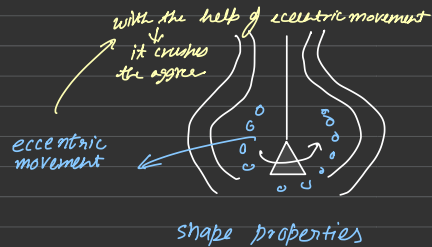 with the help of eccentric movement
it crushes
the aggree
eccentric
movement
shape properties